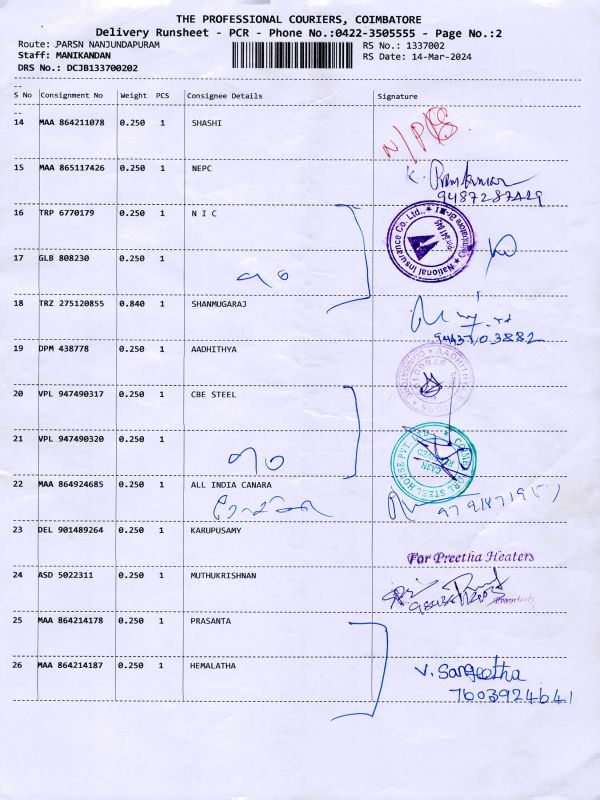 THE PROFESSIONAL COURIERS, COIMBATORE
Delivery Runsheet - PCR - Phone No.:0422-3505555 - Page No.:2
Route: PARSN NANJUNDAPURAM RS No.: 1337002
Staff: MANIKANDAN RS Date: 14-Mar-2024
DRS No.: DCJB133700202
S No Consignment No Weight PCS Consignee Details Signature
14 MAA 864211078 0.250 1 SHASHI
15 MAA 865117426 0.250 1 NEPC
K.
9487287429
16 TRP 6770179 0.250 1 N I C
National Insurance Co. Ltd.,
17 GLB 808230 0.250 1
18 TRZ 275120855 0.840 1 SHANMUGARAJ
9443703882
19 DPM 438778 0.250 1 AADHITHYA
20 VPL 947490317 0.250 1 CBE STEEL
21 VPL 947490320 0.250 1
22 MAA 864924685 0.250 1 ALL INDIA CANARA
23 DEL 901489264 0.250 1 KARUPUSAMY
For Preetha Heaters
24 ASD 5022311 0.250 1 MUTHUKRISHNAN
25 MAA 864214178 0.250 1 PRASANTA
26 MAA 864214187 0.250 1 HEMALATHA
V. Sangeetha
7603924641